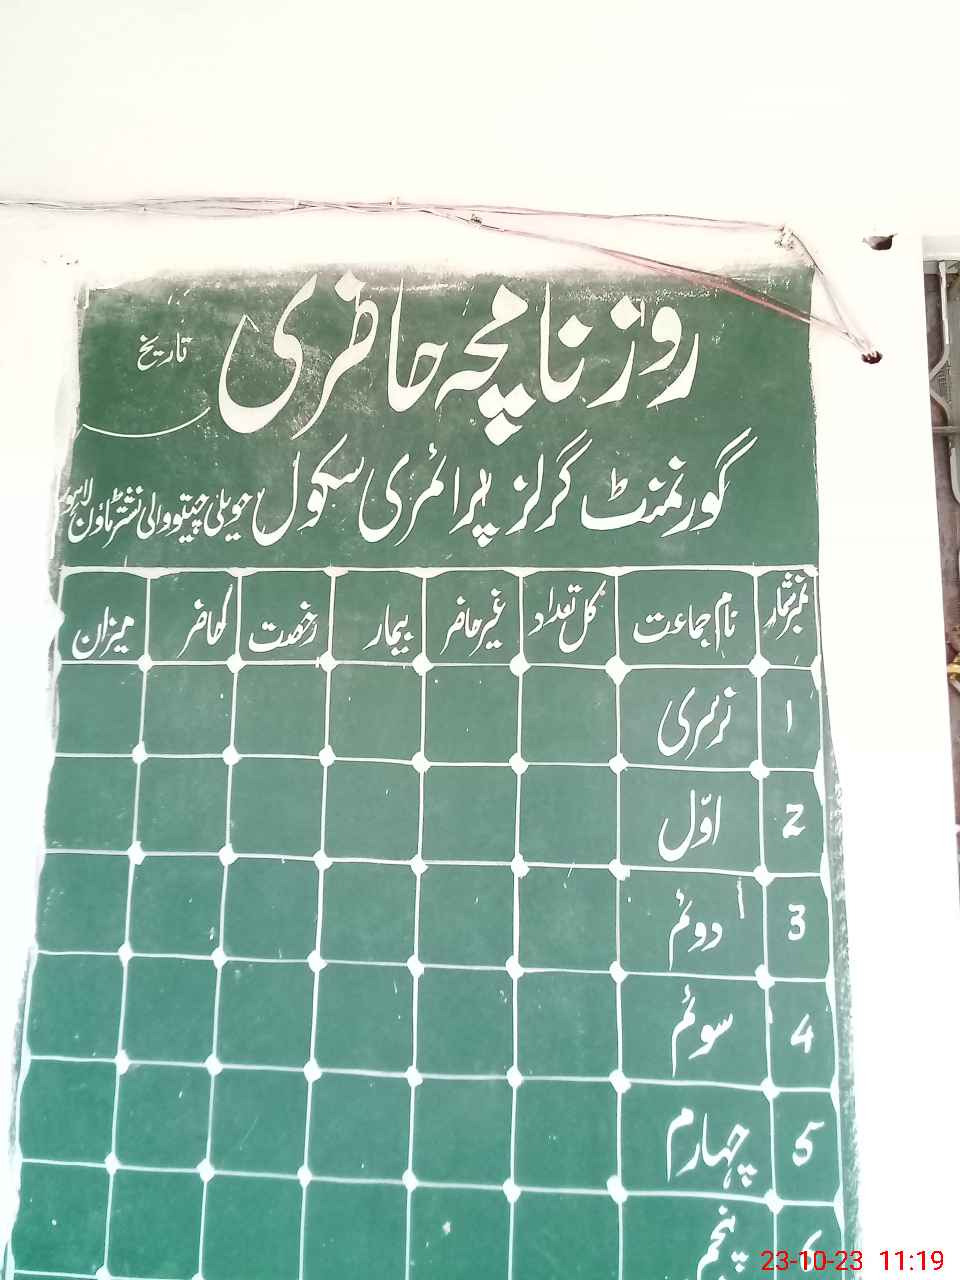 روزنامچہ حاضری
تاریخ
گورنمنٹ گرلز پرائمری سکول حویلی چپتو والی نشتر ٹاؤن لاہور
نمبر شمار نام جماعت کل تعداد غیر حاضر بیمار رخصت حاضر میزان
1 نرسری
2 اوّل
3 دوئم
4 سوئم
5 چہارم
6 پنجم
23-10-23 11:19